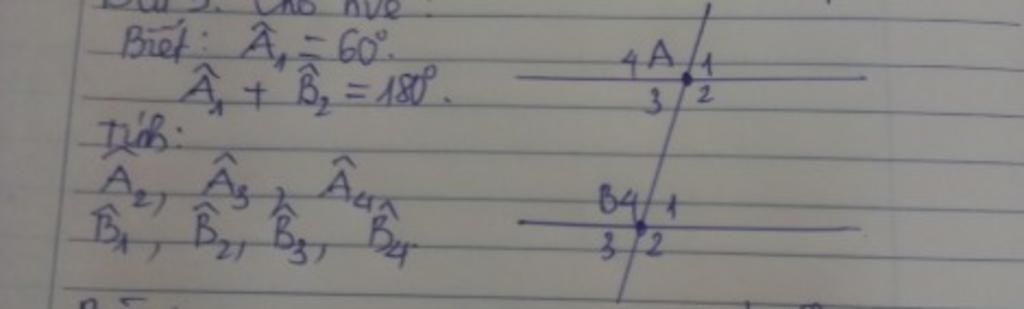 Cho hvẽ:
Biết: Â₁ = 60°.
Â₁ + B̂₂ = 180°.
Tính:
Â₂, Â₃, Â₄
B̂₁, B̂₂, B̂₃, B̂₄.
4 A 1
3 2
B 4 1
3 2